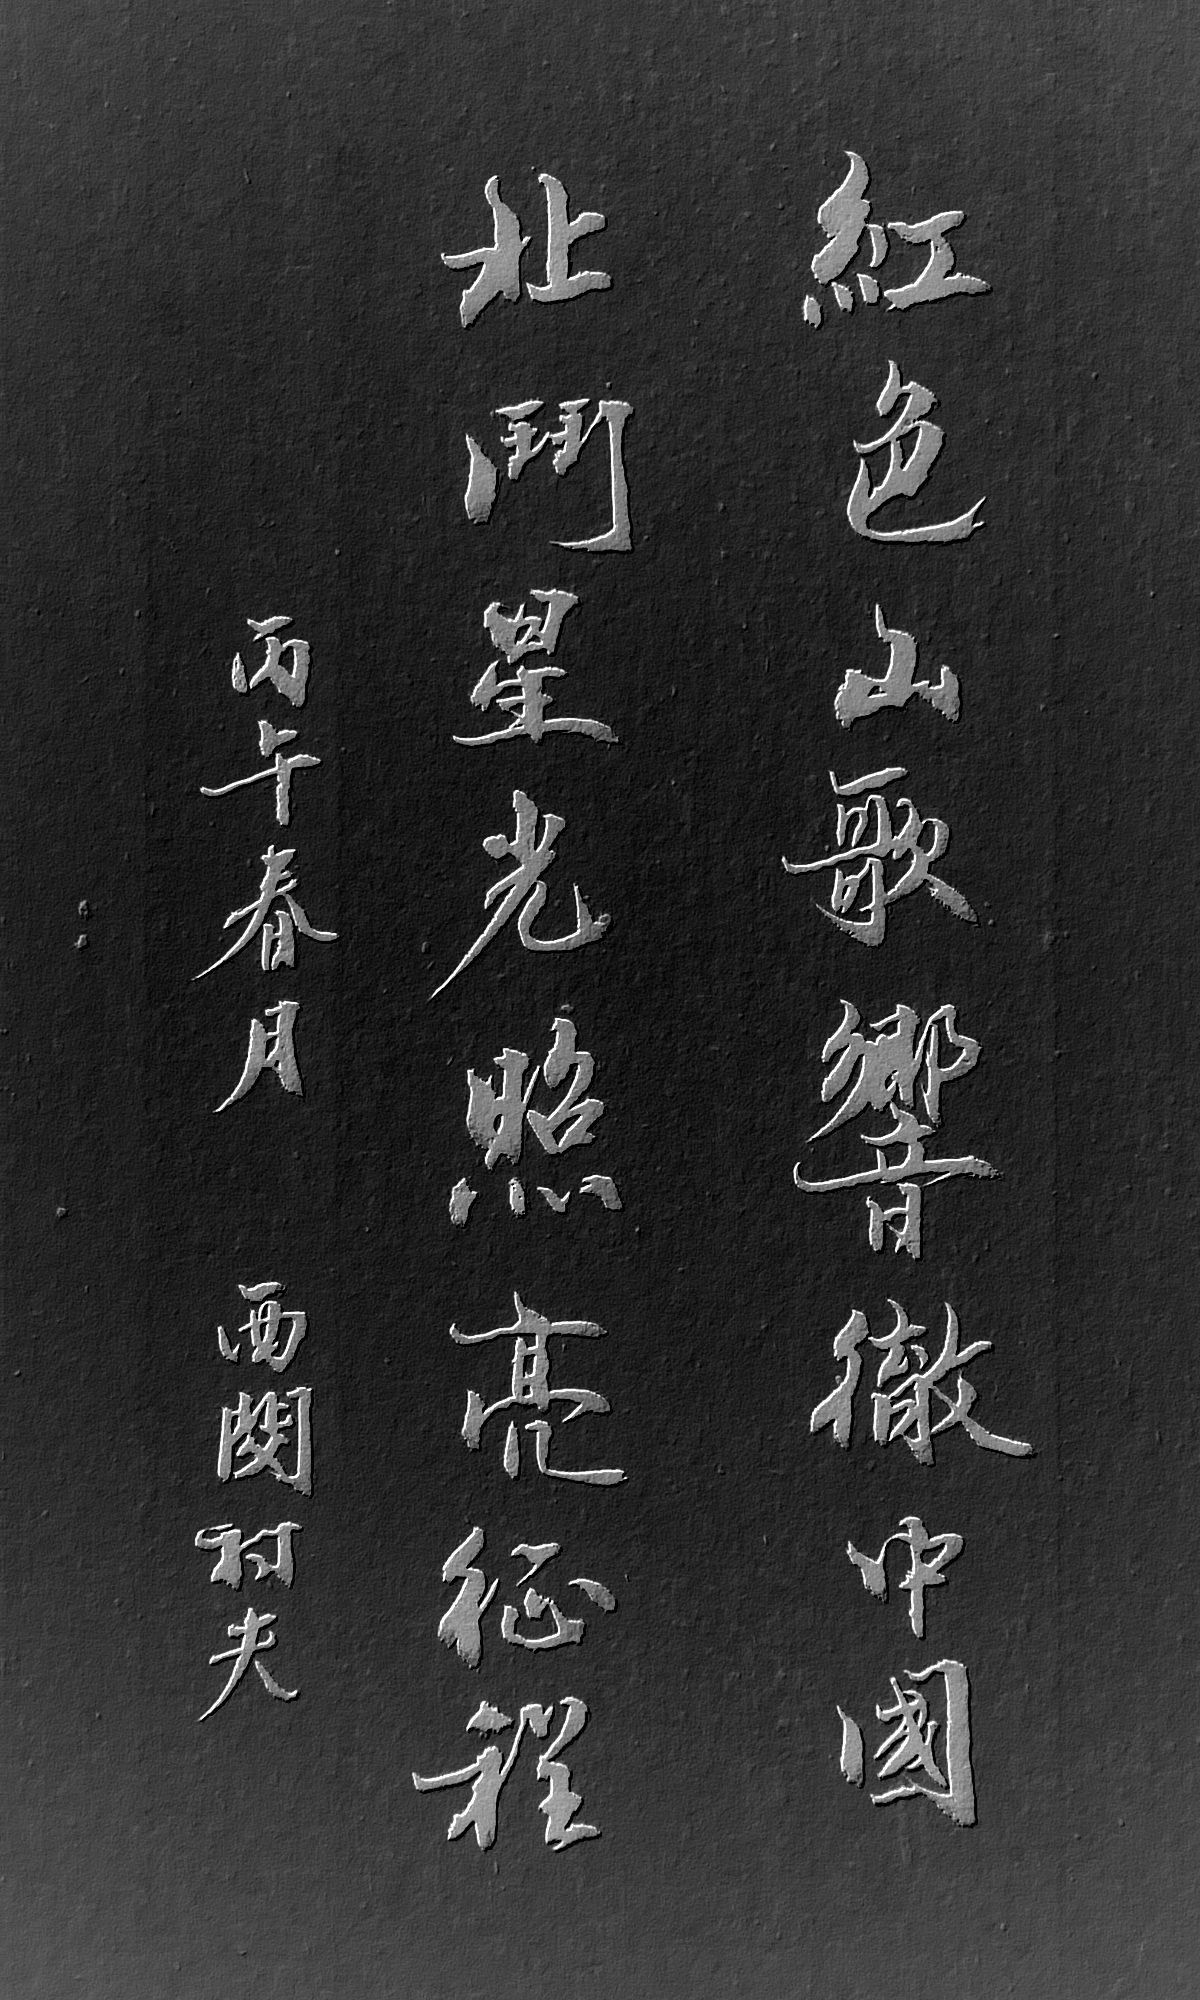 紅色山歌響徹中國
北鬥星光照亮征程
丙午春月 西関村夫